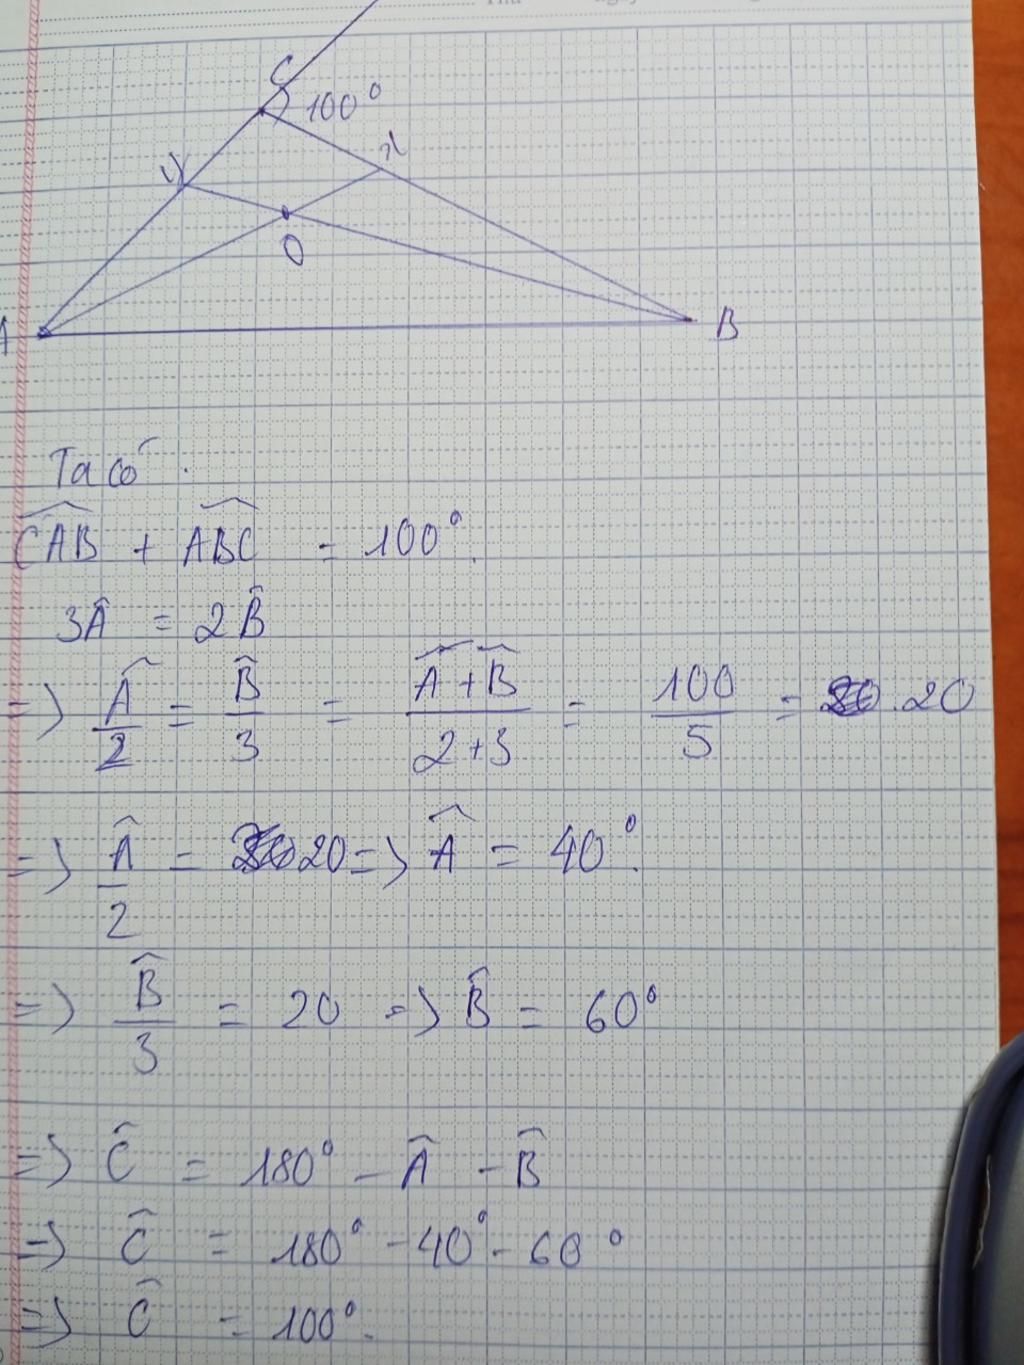 C
100°
x
y
O
A
B
Ta có
CAB + ABC = 100°.
3Â = 2B̂
=> Â/2 = B̂/3 = (Â + B̂)/(2+3) = 100/5 = 20
=> Â/2 = 20 => Â = 40°.
=> B̂/3 = 20 => B̂ = 60°
=> Ĉ = 180° - Â - B̂
=> Ĉ = 180° - 40° - 60°
=> Ĉ = 100°.